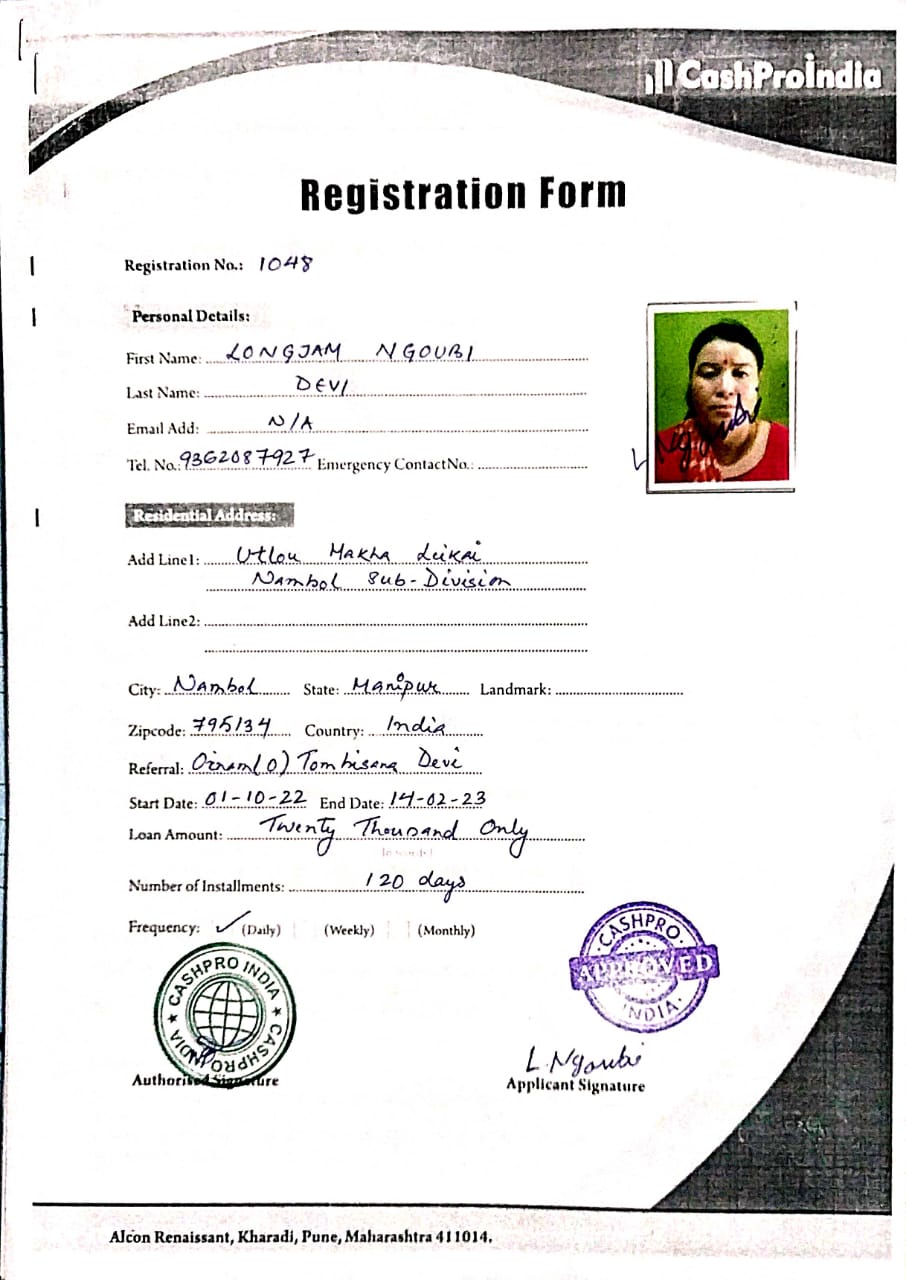 CashProIndia
Registration Form
Registration No.: 1048
Personal Details:
First Name: LONGJAM NGOUBI
Last Name: DEVI
Email Add: N/A
Tel. No.: 9362087927 Emergency Contact No.:
L Ngoubi
Residential Address:
Add Line1: Utlou Makha Leikai
Nambol Sub-Division
Add Line2:
City: Nambol State: Manipur Landmark:
Zipcode: 795134 Country: India
Referral: Oinam(O) Tombisana Devi
Start Date: 01-10-22 End Date: 14-02-23
Loan Amount: Twenty Thousand Only
Number of Installments: 120 days
Frequency: ✓ (Daily) (Weekly) (Monthly)
CASHPRO INDIA ★ CASHPRO INDIA ★
CASHPRO
APPROVED
INDIA
L. Ngoubi
Authorised Signature
Applicant Signature
Alcon Renaissant, Kharadi, Pune, Maharashtra 411014.